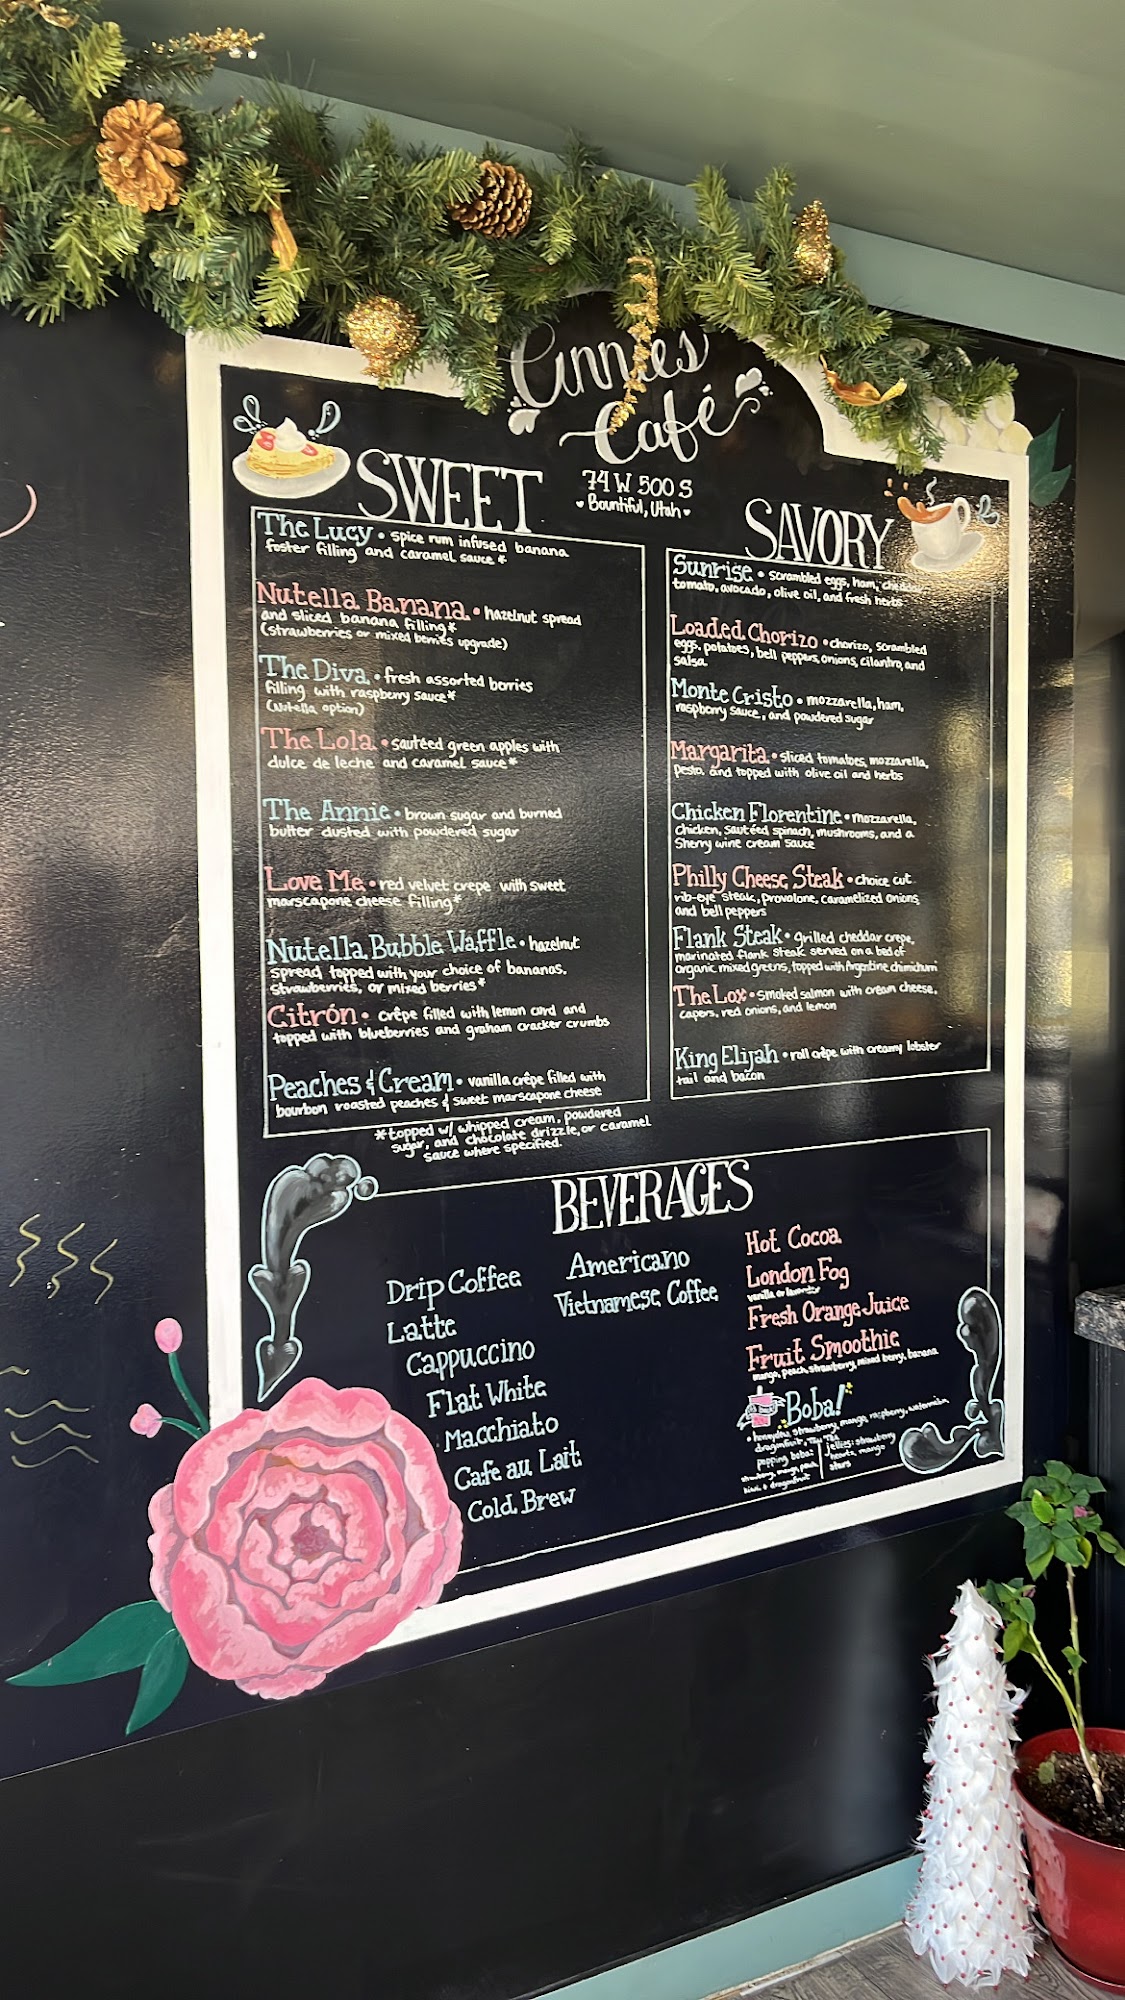 Annies
Café
74 W 500 S
Bountiful, Utah
SWEET
The Lucy • spice rum infused banana
foster filling and caramel sauce *
Nutella Banana • hazelnut spread
and sliced banana filling*
(strawberries or mixed berries upgrade)
The Diva • fresh assorted berries
filling with raspberry sauce*
(Nutella option)
The Lola • sautéed green apples with
dulce de leche and caramel sauce*
The Annie • brown sugar and burned
butter dusted with powdered sugar
Love Me • red velvet crepe with sweet
marscapone cheese filling*
Nutella Bubble Waffle • hazelnut
spread, topped with your choice of bananas,
strawberries, or mixed berries*
Citrón • crêpe filled with lemon curd and
topped with blueberries and graham cracker crumbs
Peaches & Cream • vanilla crêpe filled with
bourbon roasted peaches & sweet marscapone cheese
*topped w/ whipped cream, powdered
sugar, and chocolate drizzle, or caramel
sauce where specified.
SAVORY
Sunrise • scrambled eggs, ham, cheddar
tomato, avocado, olive oil, and fresh herbs
Loaded Chorizo • chorizo, scrambled
eggs, potatoes, bell peppers, onions, cilantro, and
salsa
Monte Cristo • mozzarella, ham,
raspberry sauce, and powdered sugar
Margarita • sliced tomatoes, mozzarella,
pesto, and topped with olive oil and herbs
Chicken Florentine • mozzarella,
chicken, sautéed spinach, mushrooms, and a
Sherry wine cream sauce
Philly Cheese Steak • choice cut
rib-eye steak, provolone, caramelized onions,
and bell peppers
Flank Steak • grilled cheddar crepe,
marinated flank steak served on a bed of
organic mixed greens, topped with Argentine chimichurri
The Lox • smoked salmon with cream cheese,
capers, red onions, and lemon
King Elijah • roll crêpe with creamy lobster
tail and bacon
BEVERAGES
Drip Coffee
Latte
Cappuccino
Flat White
Macchiato
Cafe au Lait
Cold Brew
Americano
Vietnamese Coffee
Hot Cocoa
London Fog
vanilla or lavender
Fresh Orange Juice
Fruit Smoothie
mango, peach, strawberry, mixed berry, banana
Boba!
• honeydew, strawberry, mango, raspberry, watermelon,
dragonfruit, Thai Tea
popping boba:
strawberry, mango, peach,
kiwi & dragonfruit
jellies: strawberry
hearts, mango
stars